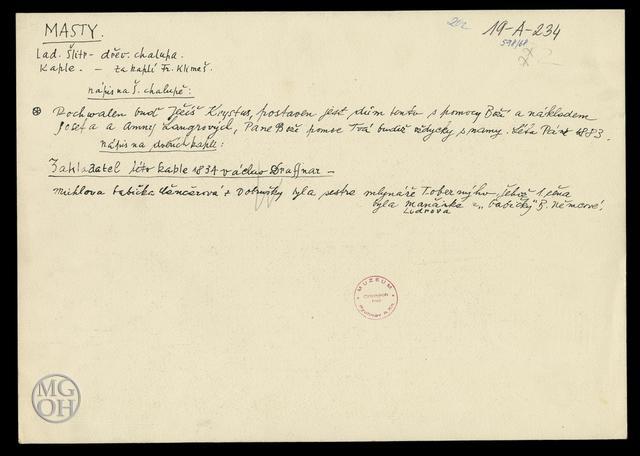 202 19-A-234
598/68
MASTY.
Lad. Šlitr - dřev. chalupa.
Kaple. - za kaplí Fr. Klimeš.
nápis na Š. chalupě:
⊛ Pochwalen buď Ježíš Krystus, postaven jest dům tento s pomocy Boží a nákladem
Josefa a Anny Langrových, Pane Bože pomoc Tvá budiž vždycky s námy. Léta Páně 1883.
nápis na kapli:
Zakladatel této kaple 1834 václav Draffnar -
babička z byla sestra mlynáře jehož 1. žena
byla mančinka z "babičky" B. Němcové.
Ludrova
MUZEUM
MGOH